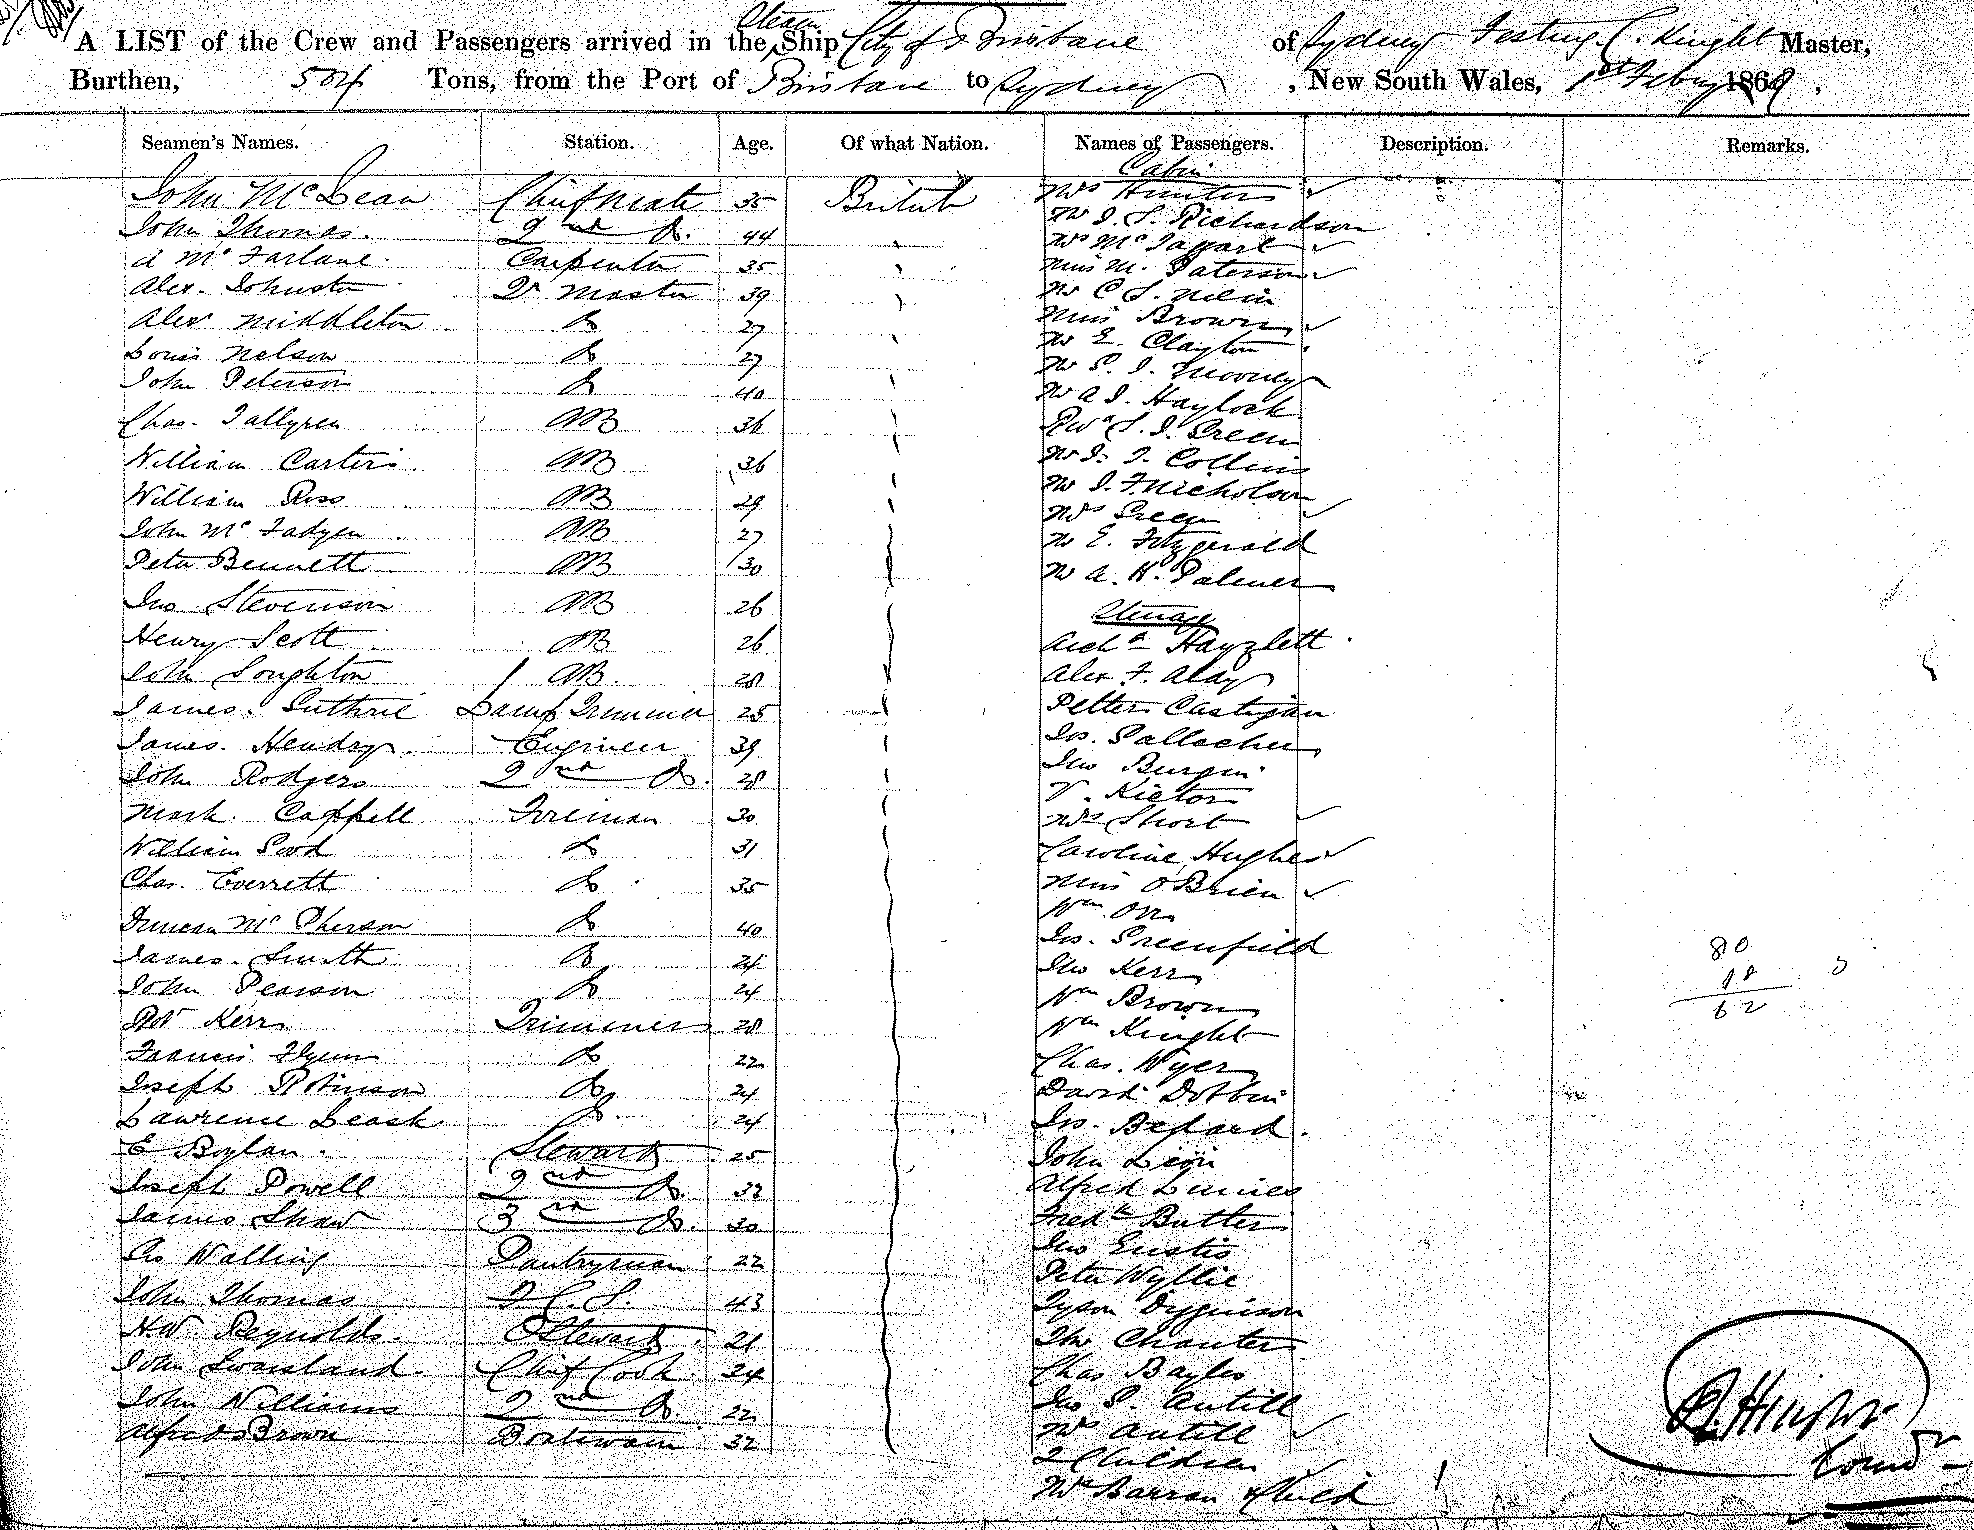 A LIST of the Crew and Passengers arrived in the Steam Ship City of Brisbane of Sydney Testing C. Knight Master,
Burthen, 504 Tons, from the Port of Brisbane to Sydney, New South Wales, 1st Feby 1869,
Seamen's Names. Station. Age. Of what Nation. Names of Passengers. Description. Remarks.
Cabin
John McLean Chief Mate 35 British Mrs Hunter
Mr J. S. Richardson
John Thomas. 2nd Do. 44
Mrs McTaggart
A McFarlane. Carpenter 35
Miss M. Paterson
Alex. Johnston Qr Master 39
Mr C S.
Alexr Middleton Do 27
Miss Brown
Mr E. Clayton
Louis Nelson Do 27
Mr S. J. Moorley
John Peterson Do 40
Mr A J. Haylock
Chas. Tallgren AB 36
Revd S. J. Green
William Carter AB 36
Mr J. J. Collins
William Ross AB 29
Mr J. F. Nicholson
Mrs Green
John McFadyen AB 27
Mr E. Fitzgerald
Peter Bennett AB 30
Mr A. H. Palmer
Jno Stevenson AB 26
Steerage
Henry Scott AB 26
Archd Hayzlett
John Soughton AB 28
Alex F. Alay
James Guthrie Lamp Trimmer 25
Petter Castigan
James Hendry. Engineer 39
Jas. Gallacher
John Rodgers 2nd Do. 28
Jno Burgin
V. Kieton
Mark Cappell Fireman 30
Mrs Short
William Good Do 31
Caroline Hughes
Chas. Everrett Do 35
Miss O'Brien
Wm Orr
Duncan McPherson Do 40
Jas. Greenfield
James Smith Do 24
80
Jno Kerr
18
John Pearson Do 24
Wm Brown
62
Robt Kerr Trimmer 28
Wm Knight
Francis Flynn Do 22
Chas. Wyer
Joseph Robinson Do 24
David Dobbin
Lawrence Leask Do. 24
Jas. Bedford.
E Boylan. Steward 25
John Leon
Joseph Powell 2nd Do. 32
Alfred Linnies
James Shaw 3rd Do. 30
Fredk Butler
Jno Eustis
Geo Walling Pantryman 22
Peter Wyllie
John Thomas F. C. S. 43
Tyson Dygginson
H W Reynolds. Steward 21
Thos Chanter
John Swaisland. Chief Cook 34
Chas Bayles
John Williams 2nd Do. 22
Jno S. Antill
Alfred Brown Boatswain 32
Mrs Antill
2 Children
Mrs Barran & child